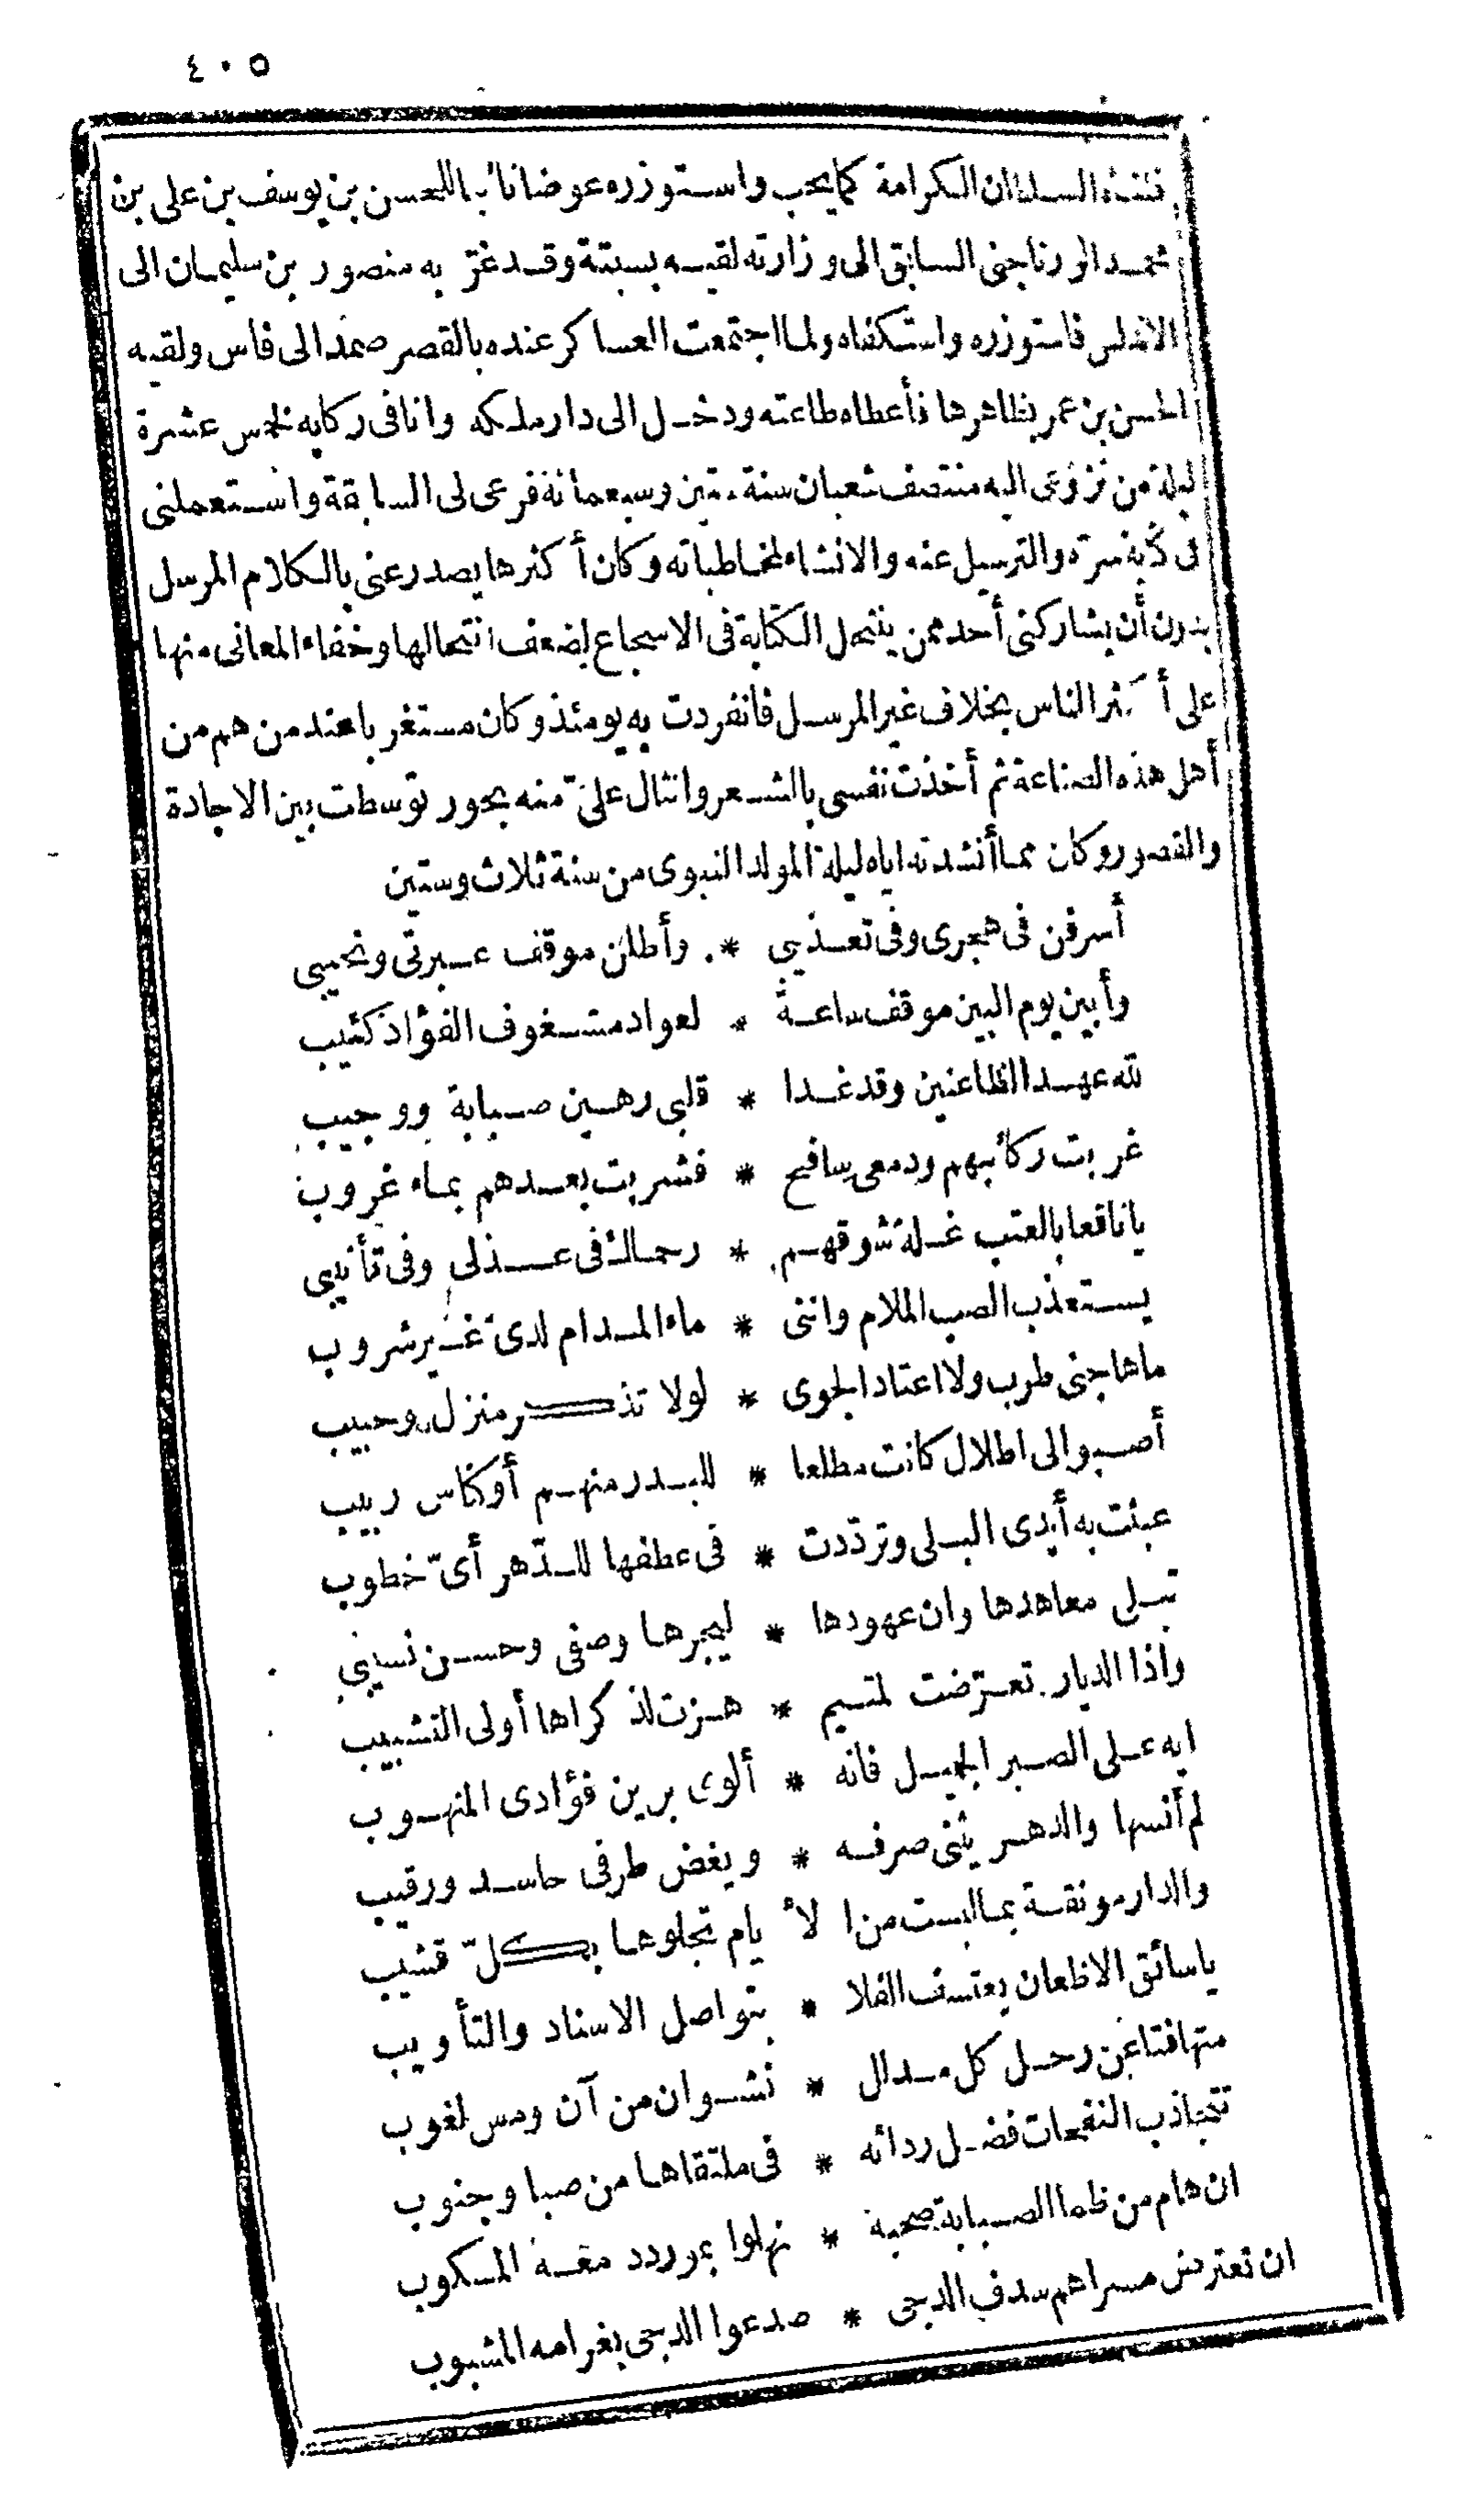 ٤٠٥
السلطان الكرامة كما يجب واستوزره عوضا نائبا للحسن بن يوسف بن على بن
محمد الورتاجنى السابق الى وزارته لقيه بسبتة وقد غرّ به منصور بن سليمان الى
الاندلس فاستوزره واستكفاه ولما اجتمعت العساكر عنده بالقصر صمد الى فاس ولقيه
الحسن بن عمر بظاهرها فأعطاه طاعته ودخل الى دار ملكه وانا فى ركابه لخمس عشرة
ليلة من نزوعى اليه منتصف شعبان سنة ستين وسبعمائة فرعى لى السابقة واستعملنى
فى كتابة سرّه والترسيل عنه والانشاء لمخاطباته وكان أكثرها يصدر عنى بالكلام المرسل
بدون أن يشاركنى أحد ممن ينتحل الكتابة فى الاسجاع لضعف انتحالها وخفاء المعانى منها
على أكثر الناس بخلاف غير المرسل فانفردت به يومئذ وكان مستغربا عند من هم من
أهل هذه الصناعة ثم أخذت نفسى بالشعر وانثال علىّ منه بحور توسطت بين الاجادة
والقصور وكان مما أنشدته اياه ليلة المولد النبوى من سنة ثلاث وستين
أسرفن فى هجرى وفى تعذيبى * وأطلن موقف عبرتى ونحيبى
وأبين يوم البين موقف ساعة * لعواد مشغوف الفؤاد كئيب
لله عهد الظاعنين وقد غدا * قلبى رهين صبابة ووجيب
غربت ركائبهم ودمعى سافح * فشربت بعدهم بماء غروب
يا ناقعا بالعتب غلة شوقهم * رحماك فى عذلى وفى تأنيبى
يستعذب الصب الملام واننى * ماء المدام لدىّ غير شروب
ما هاجنى طرب ولا اعتاد الجوى * لولا تذكر منزل وحبيب
أصبو الى اطلال كانت مطلعا * للبدر منهم أو كناس ربيب
عبثت به أيدى البلى وتردّدت * فى عطفها للدّهر أىّ خطوب
تبلى معاهدها وان عهودها * ليجرها وصفى وحسن نسيبى
واذا الديار تعرّضت لمتيم * هزت لذكراها أولى التشبيب
ايه على الصبر الجميل فانه * ألوى برين فؤادى المنهوب
لم أنسها والدهر يثنى صرفه * ويغض طرفى حاسد ورقيب
والدار مونقة بما لبست من ا لأ يام تجلوها بكلّ قشيب
يا سائق الاظعان يعتسف الفلا * بتواصل الاسناد والتأويب
متهافتا عن رحل كل مدال * نشوان من آن ومس لغوب
تتجاذب النفحات فضل ردائه * فى ملتقاها من صبا وجنوب
ان هام من ظما الصبابة صحبة * نهلوا بمورد دمعه المسكوب
ان تعترض مسراهم سدف الدجى * صدعوا الدجى بغرامه المشبوب